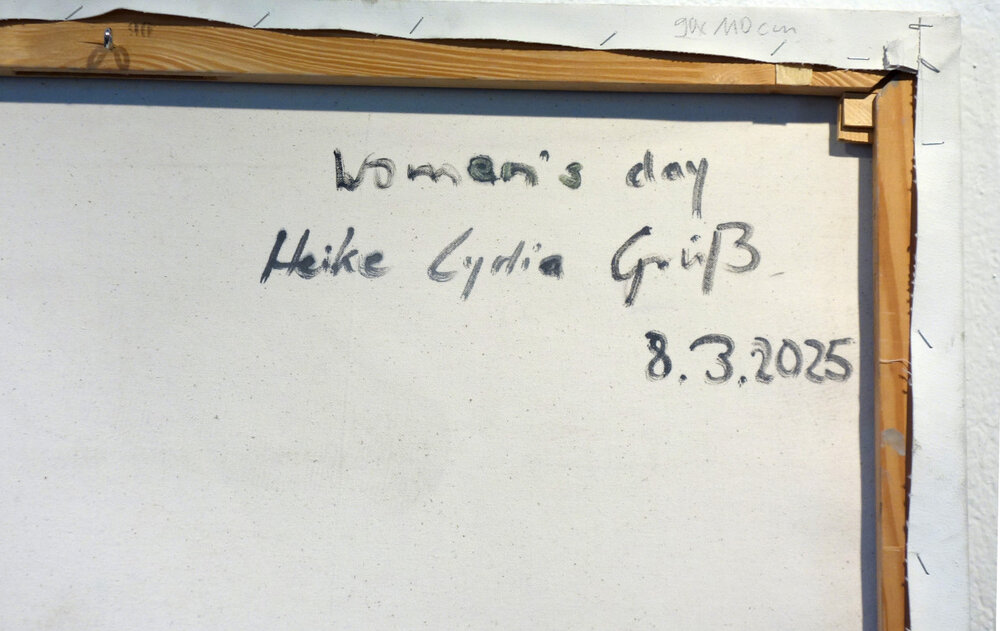 90x110cm
Women's day
Heike Lydia Grüß
8.3.2025